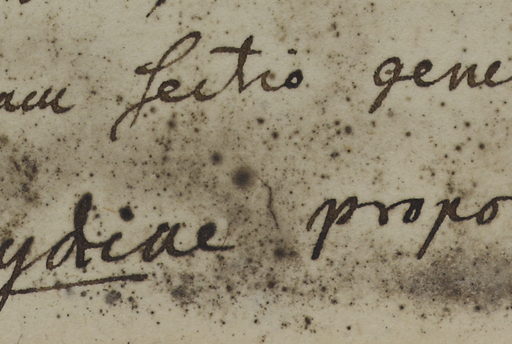 sectio gene
ydiae propo